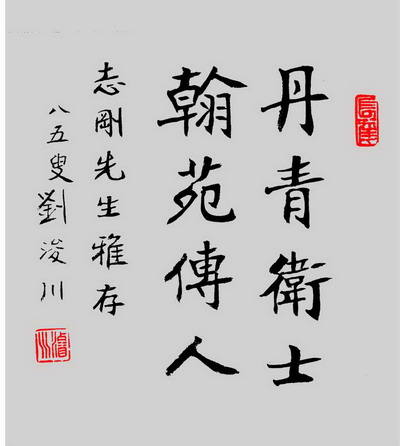 丹青衛士
翰苑傳人
志剛先生雅存
八五叟劉浚川